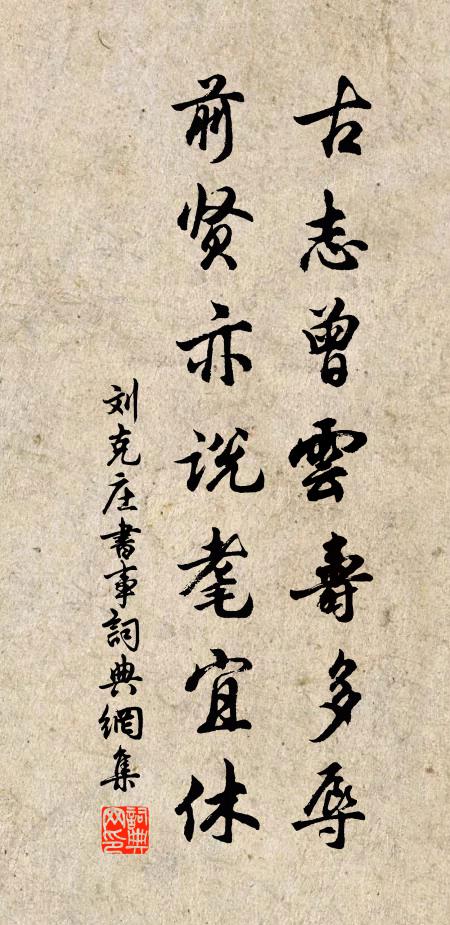 古志曾雲壽多辱
前贤亦说耄宜休
刘克庄書事詞典網集
詞典网印